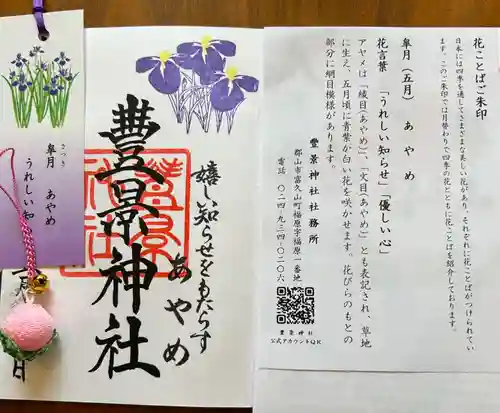 皐月 あやめ
さつき
うれしい知
嬉しい知らせをもたらす
あやめ
豊景神社
日
花ことばご朱印
日本には四季を通してさまざまな美しい花があり、それぞれに花ことばがつけられてい
ます。このご朱印では月替わりで四季の花とともに花ことばを紹介しております。
皐月(五月) あやめ
花言葉 「うれしい知らせ」「優しい心」
アヤメは「綾目(あやめ)」、「文目(あやめ)」とも表記され、草地
に生え、五月頃に青紫か白い花を咲かせます。花びらのもとの
部分に網目模様があります。
豊景神社社務所
郡山市富久山町福原字福原一番地
電話 〇二四-九三四-〇二〇六
豊景神社
公式アカウントQR